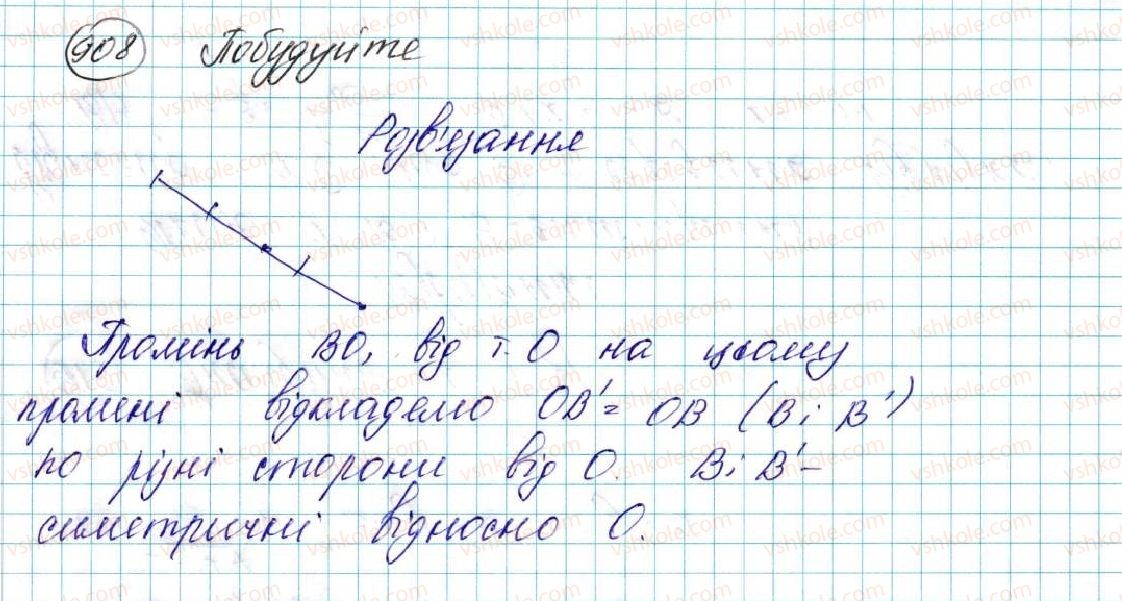 908 Побудуйте
Розв'язання
Промінь BO, від т. O на цьому
промені відкладемо OB' = OB (B і B')
по різні сторони від O. B і B' –
симетричні відносно O.